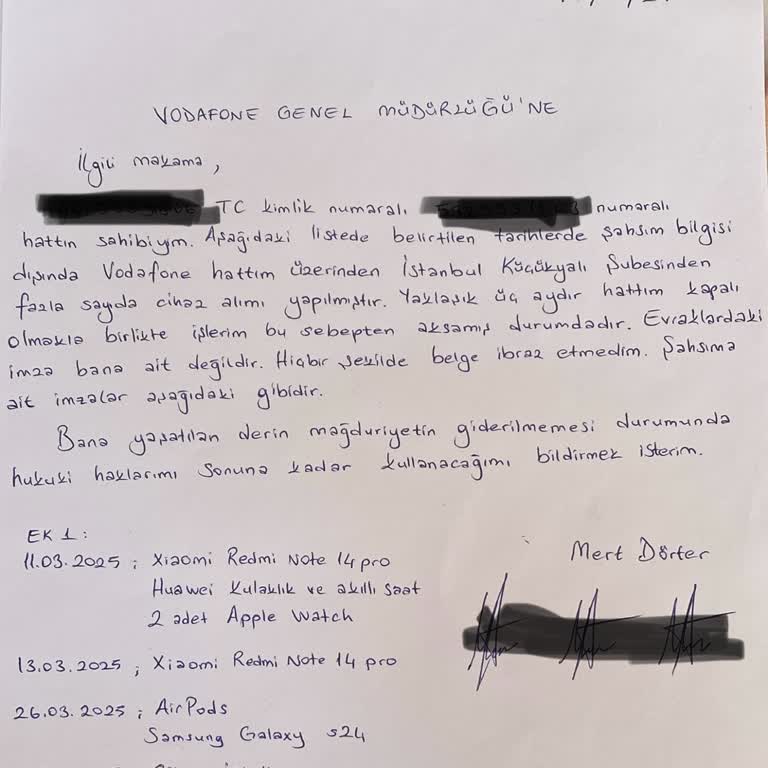 VODAFONE GENEL MÜDÜRLÜĞÜ'NE
İlgili makama,
TC kimlik numaralı numaralı
hattın sahibiyim. Aşağıdaki listede belirtilen tarihlerde şahsım bilgisi
dışında Vodafone hattım üzerinden İstanbul Küçükyalı Şubesinden
fazla sayıda cihaz alımı yapılmıştır. Yaklaşık üç aydır hattım kapalı
olmakla birlikte işlerim bu sebepten aksamış durumdadır. Evraklardaki
imza bana ait değildir. Hiçbir şekilde belge ibraz etmedim. Şahsıma
ait imzalar aşağıdaki gibidir.
Bana yaşatılan derin mağduriyetin giderilmemesi durumunda
hukuki haklarımı sonuna kadar kullanacağımı bildirmek isterim.
EK 1:
11.03.2025 ; Xiaomi Redmi Note 14 pro
Huawei kulaklık ve akıllı saat
2 adet Apple Watch
13.03.2025 ; Xiaomi Redmi Note 14 pro
26.03.2025 ; AirPods
Samsung Galaxy s24
Mert Dörter